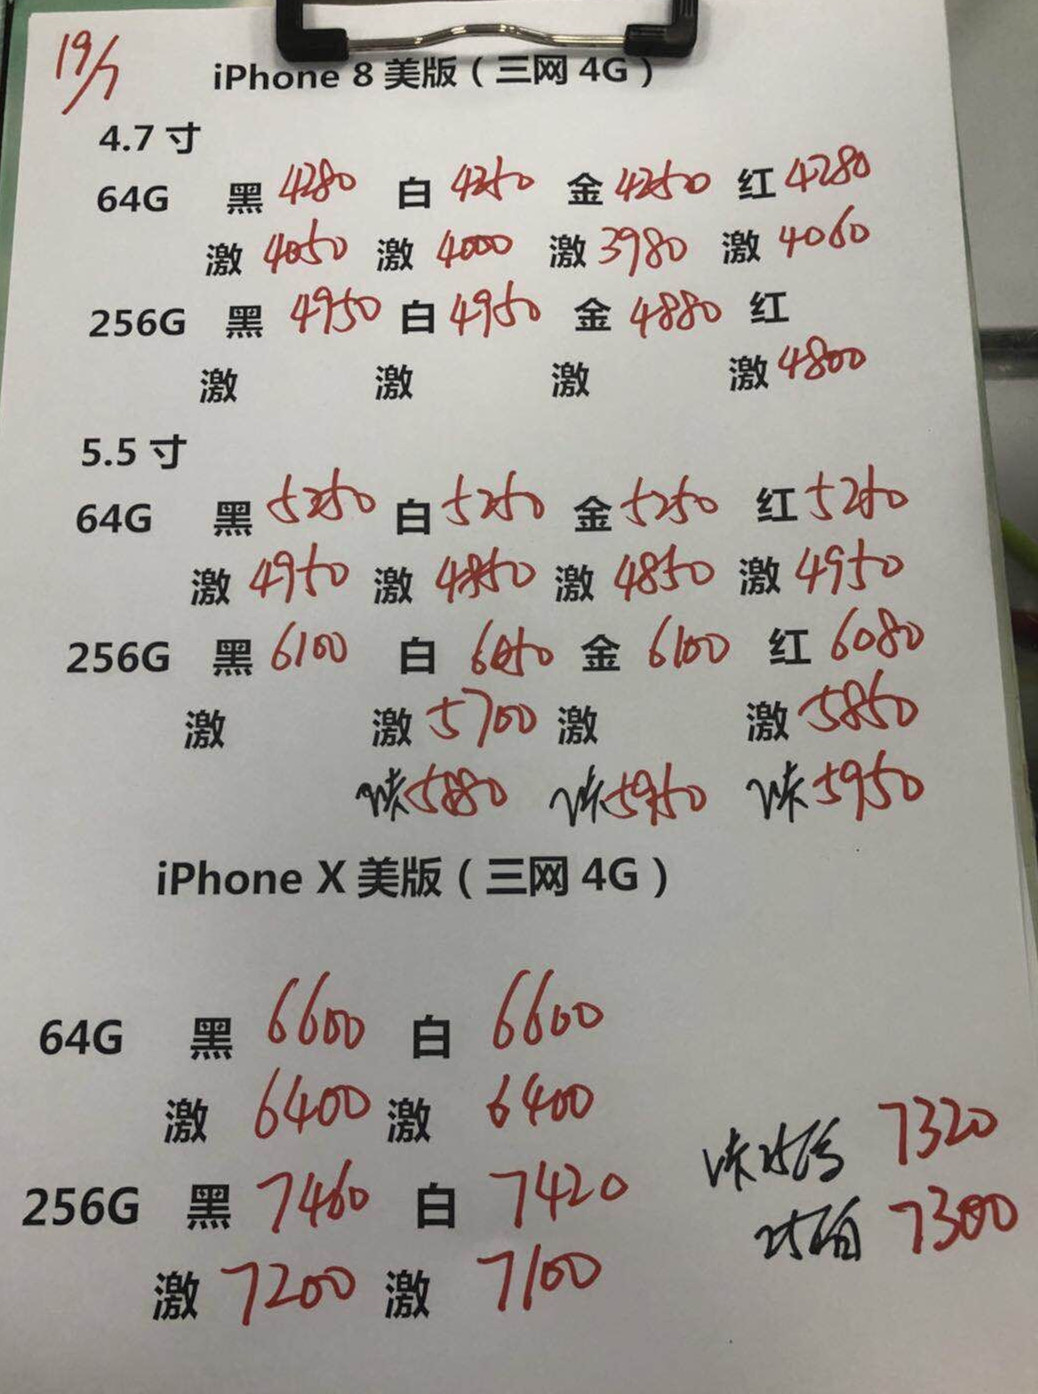 19/7
iPhone 8 美版（三网 4G）
4.7 寸
64G 黑 4280 白 4250 金 4250 红 4280
激 4050 激 4000 激 3980 激 4060
256G 黑 4950 白 4950 金 4880 红
激 激 激 激 4800
5.5 寸
64G 黑 5250 白 5250 金 5250 红 5250
激 4950 激 4850 激 4850 激 4950
256G 黑 6100 白 6050 金 6100 红 6080
激 激 5700 激 激 5850
5880 5950 5950
iPhone X 美版（三网 4G）
64G 黑 6600 白 6600
激 6400 激 6400
7320
256G 黑 7460 白 7420
7300
激 7200 激 7100